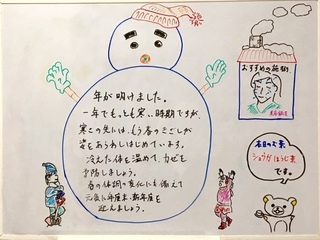 年が明けました。
一年でもっとも寒い時期ですが、
寒この先には、もう春のきざしが
姿をあらわしはじめています。
冷えた体を温めて、カゼを
予防しましょう。
春の体調の変化にも備えて
元気に年度末・新年度を
迎えましょう。
おすすめの施術
本日のお茶
ショウガほうじ茶
です。